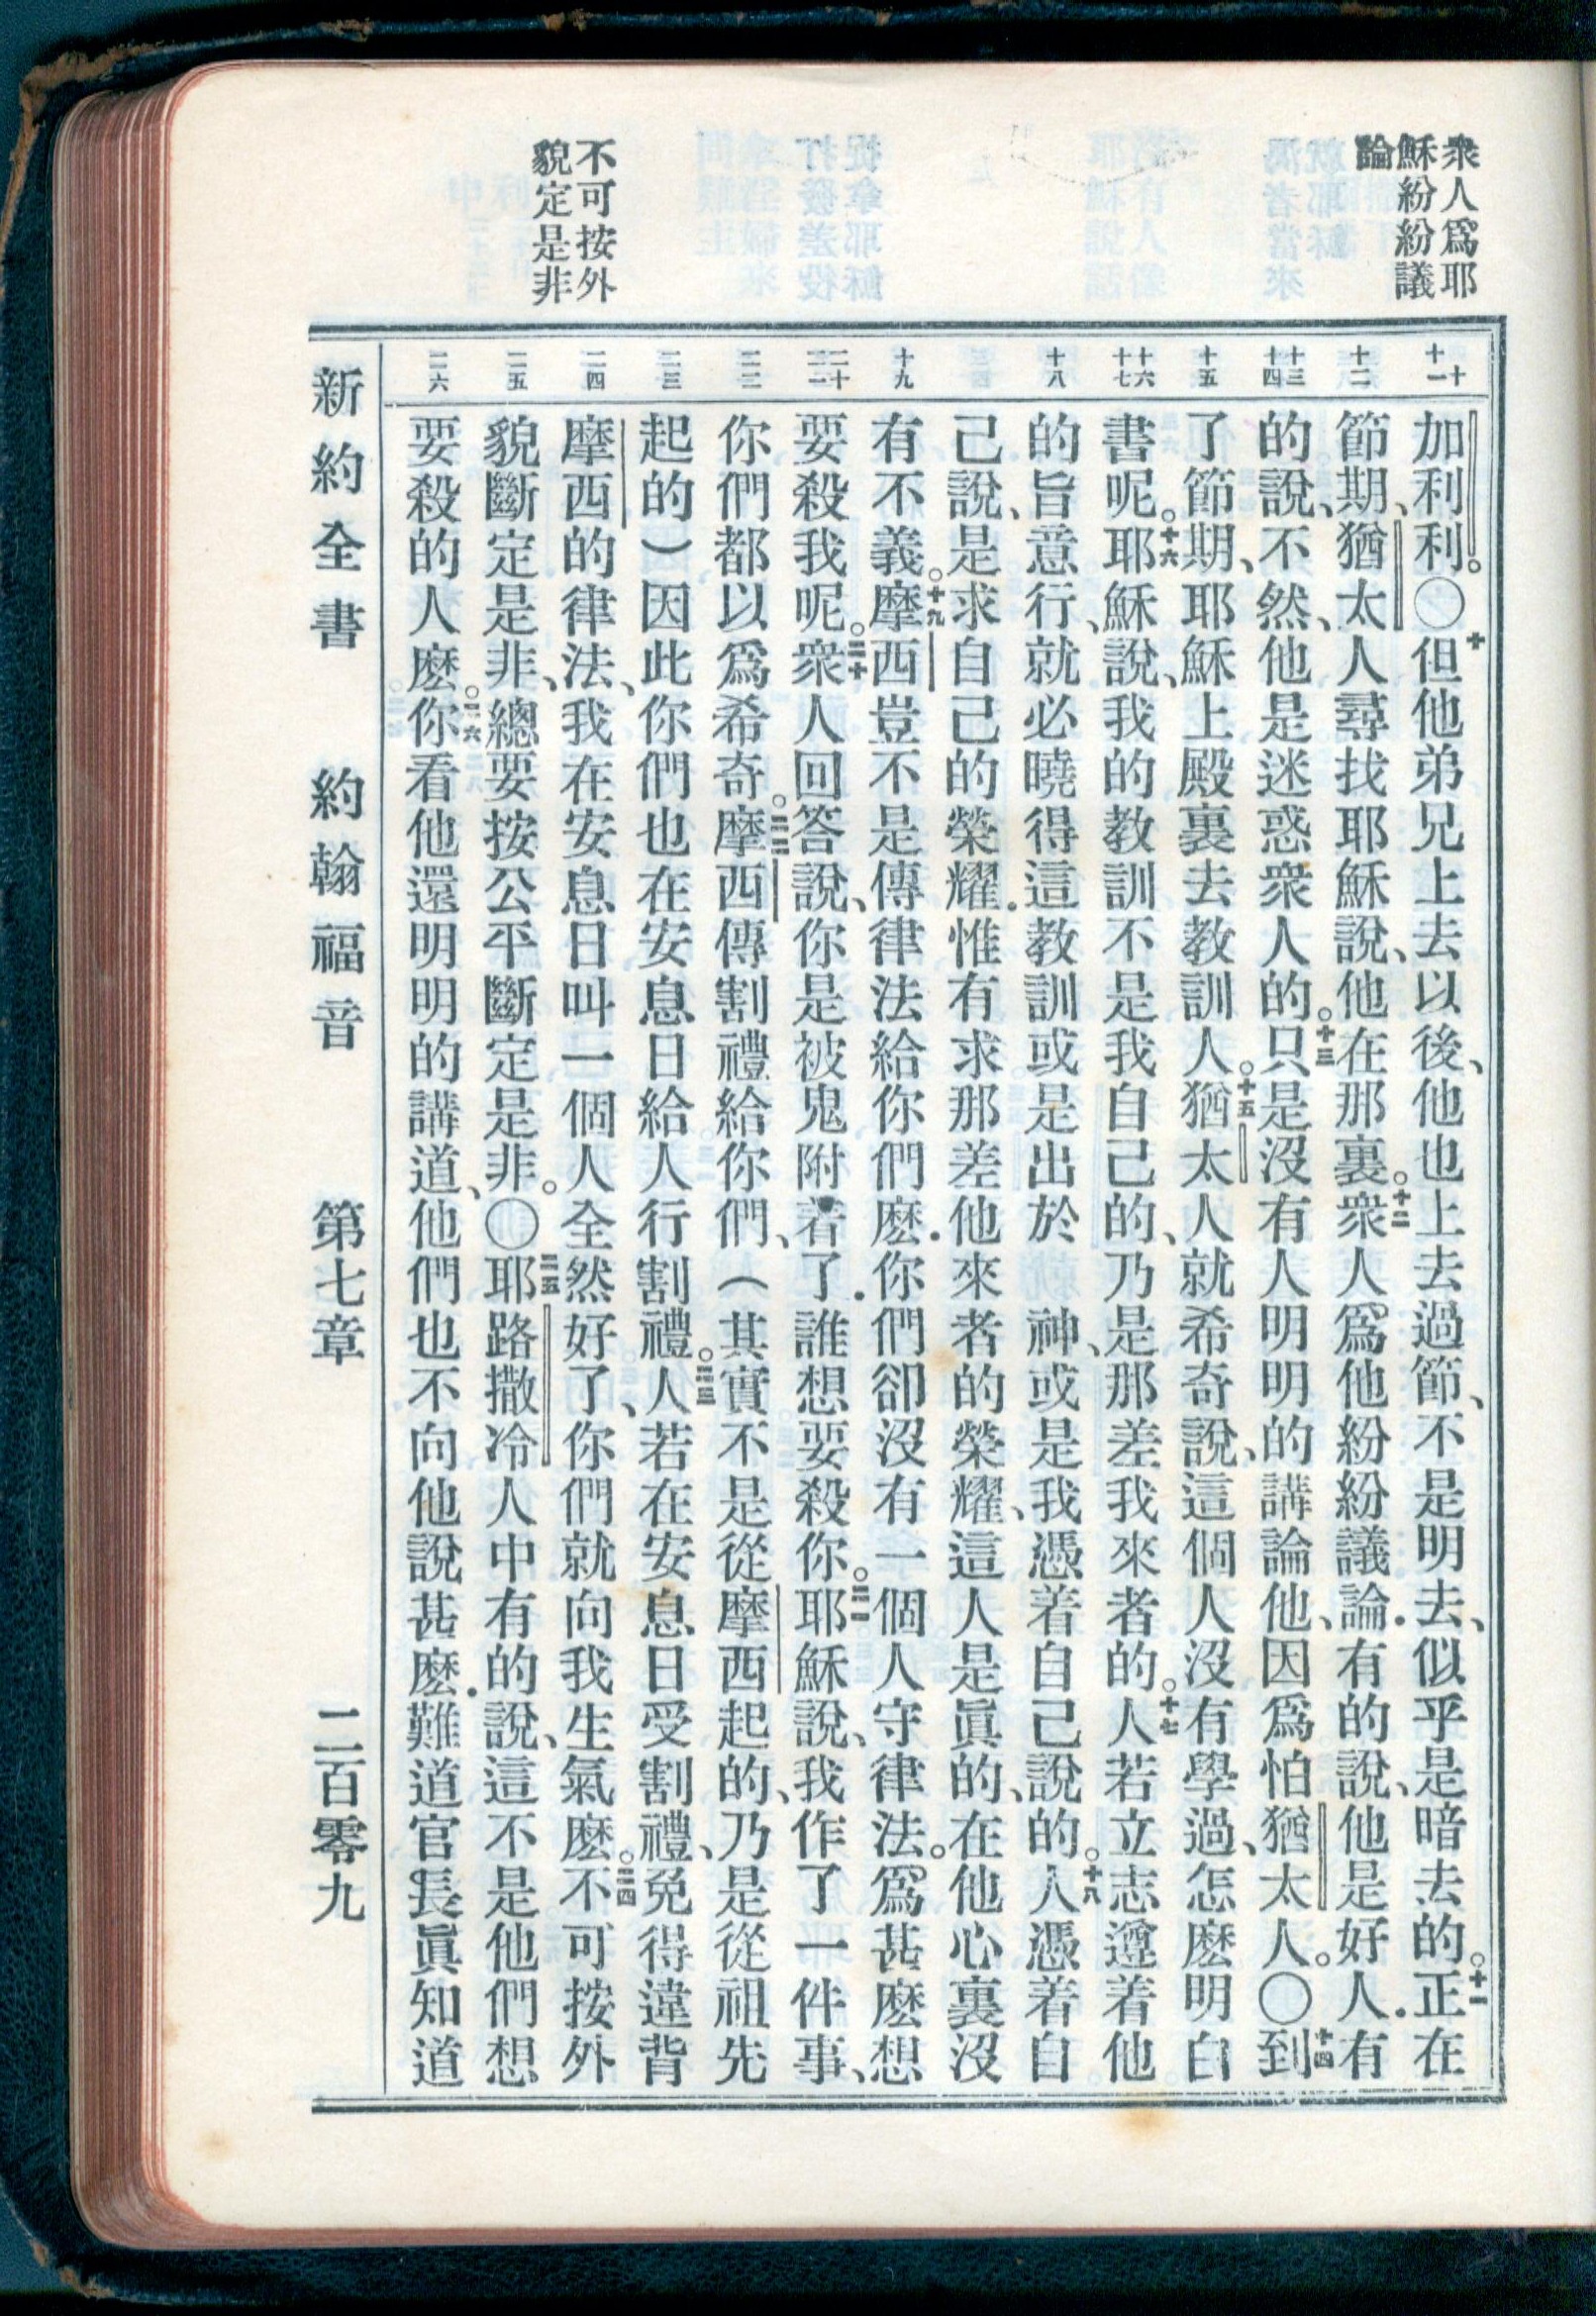 衆人爲耶
穌紛紛議
論
不可按外
貌定是非
十
十一
十二
十三
十四
十五
十六
十七
十八
十九
二十
二一
二二
二三
二四
二五
二六
加利利。〇十但他弟兄上去以後、他也上去過節、不是明去、似乎是暗去的。十一正在
節期、猶太人尋找耶穌說、他在那裏。十二衆人爲他紛紛議論．有的說、他是好人．有
的說、不然、他是迷惑衆人的。十三只是沒有人明明的講論他、因爲怕猶太人。〇十四到
了節期、耶穌上殿裏去教訓人。十五猶太人就希奇說、這個人沒有學過、怎麽明白
書呢。十六耶穌說、我的教訓不是我自己的、乃是那差我來者的。十七人若立志遵着他
的旨意行、就必曉得這教訓或是出於　神、或是我憑着自己說的。十八人憑着自
己說、是求自己的榮耀．惟有求那差他來者的榮耀、這人是眞的、在他心裏沒
有不義。十九摩西豈不是傳律法給你們麽．你們卻沒有一個人守律法。爲甚麽想
要殺我呢。二十衆人回答說、你是被鬼附着了．誰想要殺你。二一耶穌說、我作了一件事、
你們都以爲希奇。二二摩西傳割禮給你們、（其實不是從摩西起的、乃是從祖先
起的）因此你們也在安息日給人行割禮。二三人若在安息日受割禮、免得違背
摩西的律法、我在安息日叫一個人全然好了、你們就向我生氣麽。二四不可按外
貌斷定是非、總要按公平斷定是非。〇二五耶路撒冷人中有的說、這不是他們想
要殺的人麽。二六你看他還明明的講道、他們也不向他說甚麽．難道官長眞知道
新約全書　約翰福音　第七章　二百零九